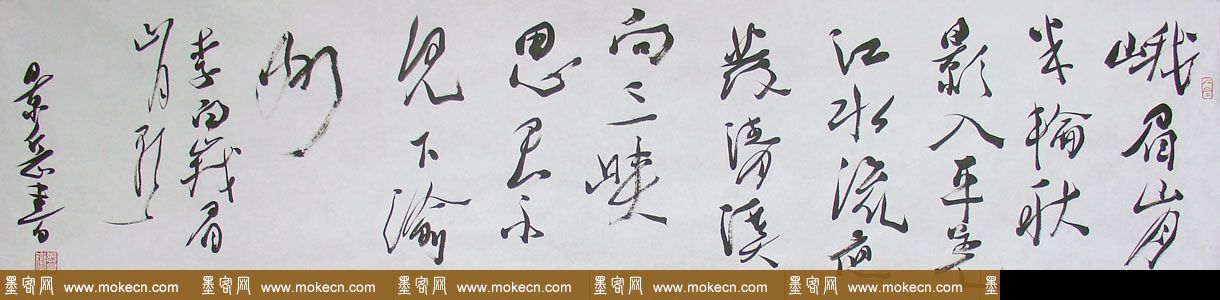 峨眉山月
半輪秋
影入平羌
江水流夜
發清溪
向三峡
思君不
見下渝
州
李白峨眉
山月歌
景書
墨客网 www.mokecn.com 墨客网 www.mokecn.com 墨客网 www.mokecn.com 墨客网 www.mokecn.com 墨客网 www.mokecn.com 墨客网 www.mokecn.com